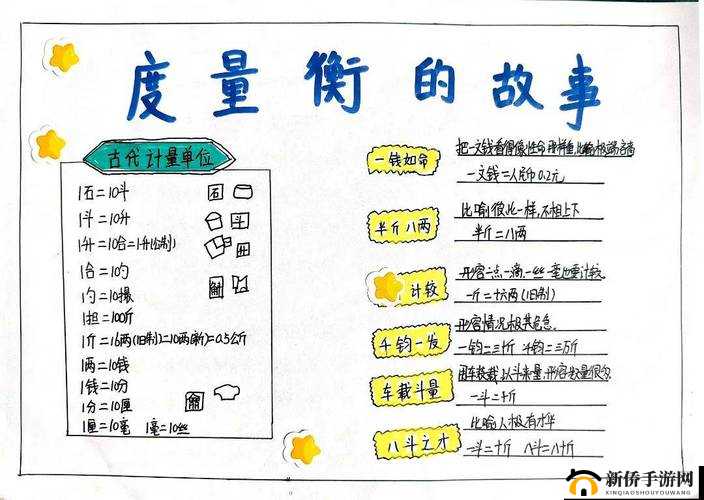 度量衡的故事
古代计量单位
1石=10斗
1斗=10升
1升=10合=1升(公制)
1合=10勺
1勺=10撮
1担=100斤
1斤=16两(旧制)=10两(新)=0.5公斤
1两=10钱
1钱=10分
1分=10厘
1厘=10毫 1毫=10丝
石
斗
升
一钱如命
把一文钱看得像性命
一文钱=人民币0.2元
半斤八两
比喻彼此一样,不相上下
半斤=八两
计较
形容一点一滴,一丝一毫也要计较
一斤=十六两(旧制)
千钧一发
形容情况极其危急.
一钧=三十斤 千钧=三万斤
车载斗量
用车载,以斗来量,形容数量很多
一斗=十斤
八斗之才
比喻人极有才华
一斗=十斤 八斗=八十斤
新侨手游网
XINQIAOSHOUYOUWANG